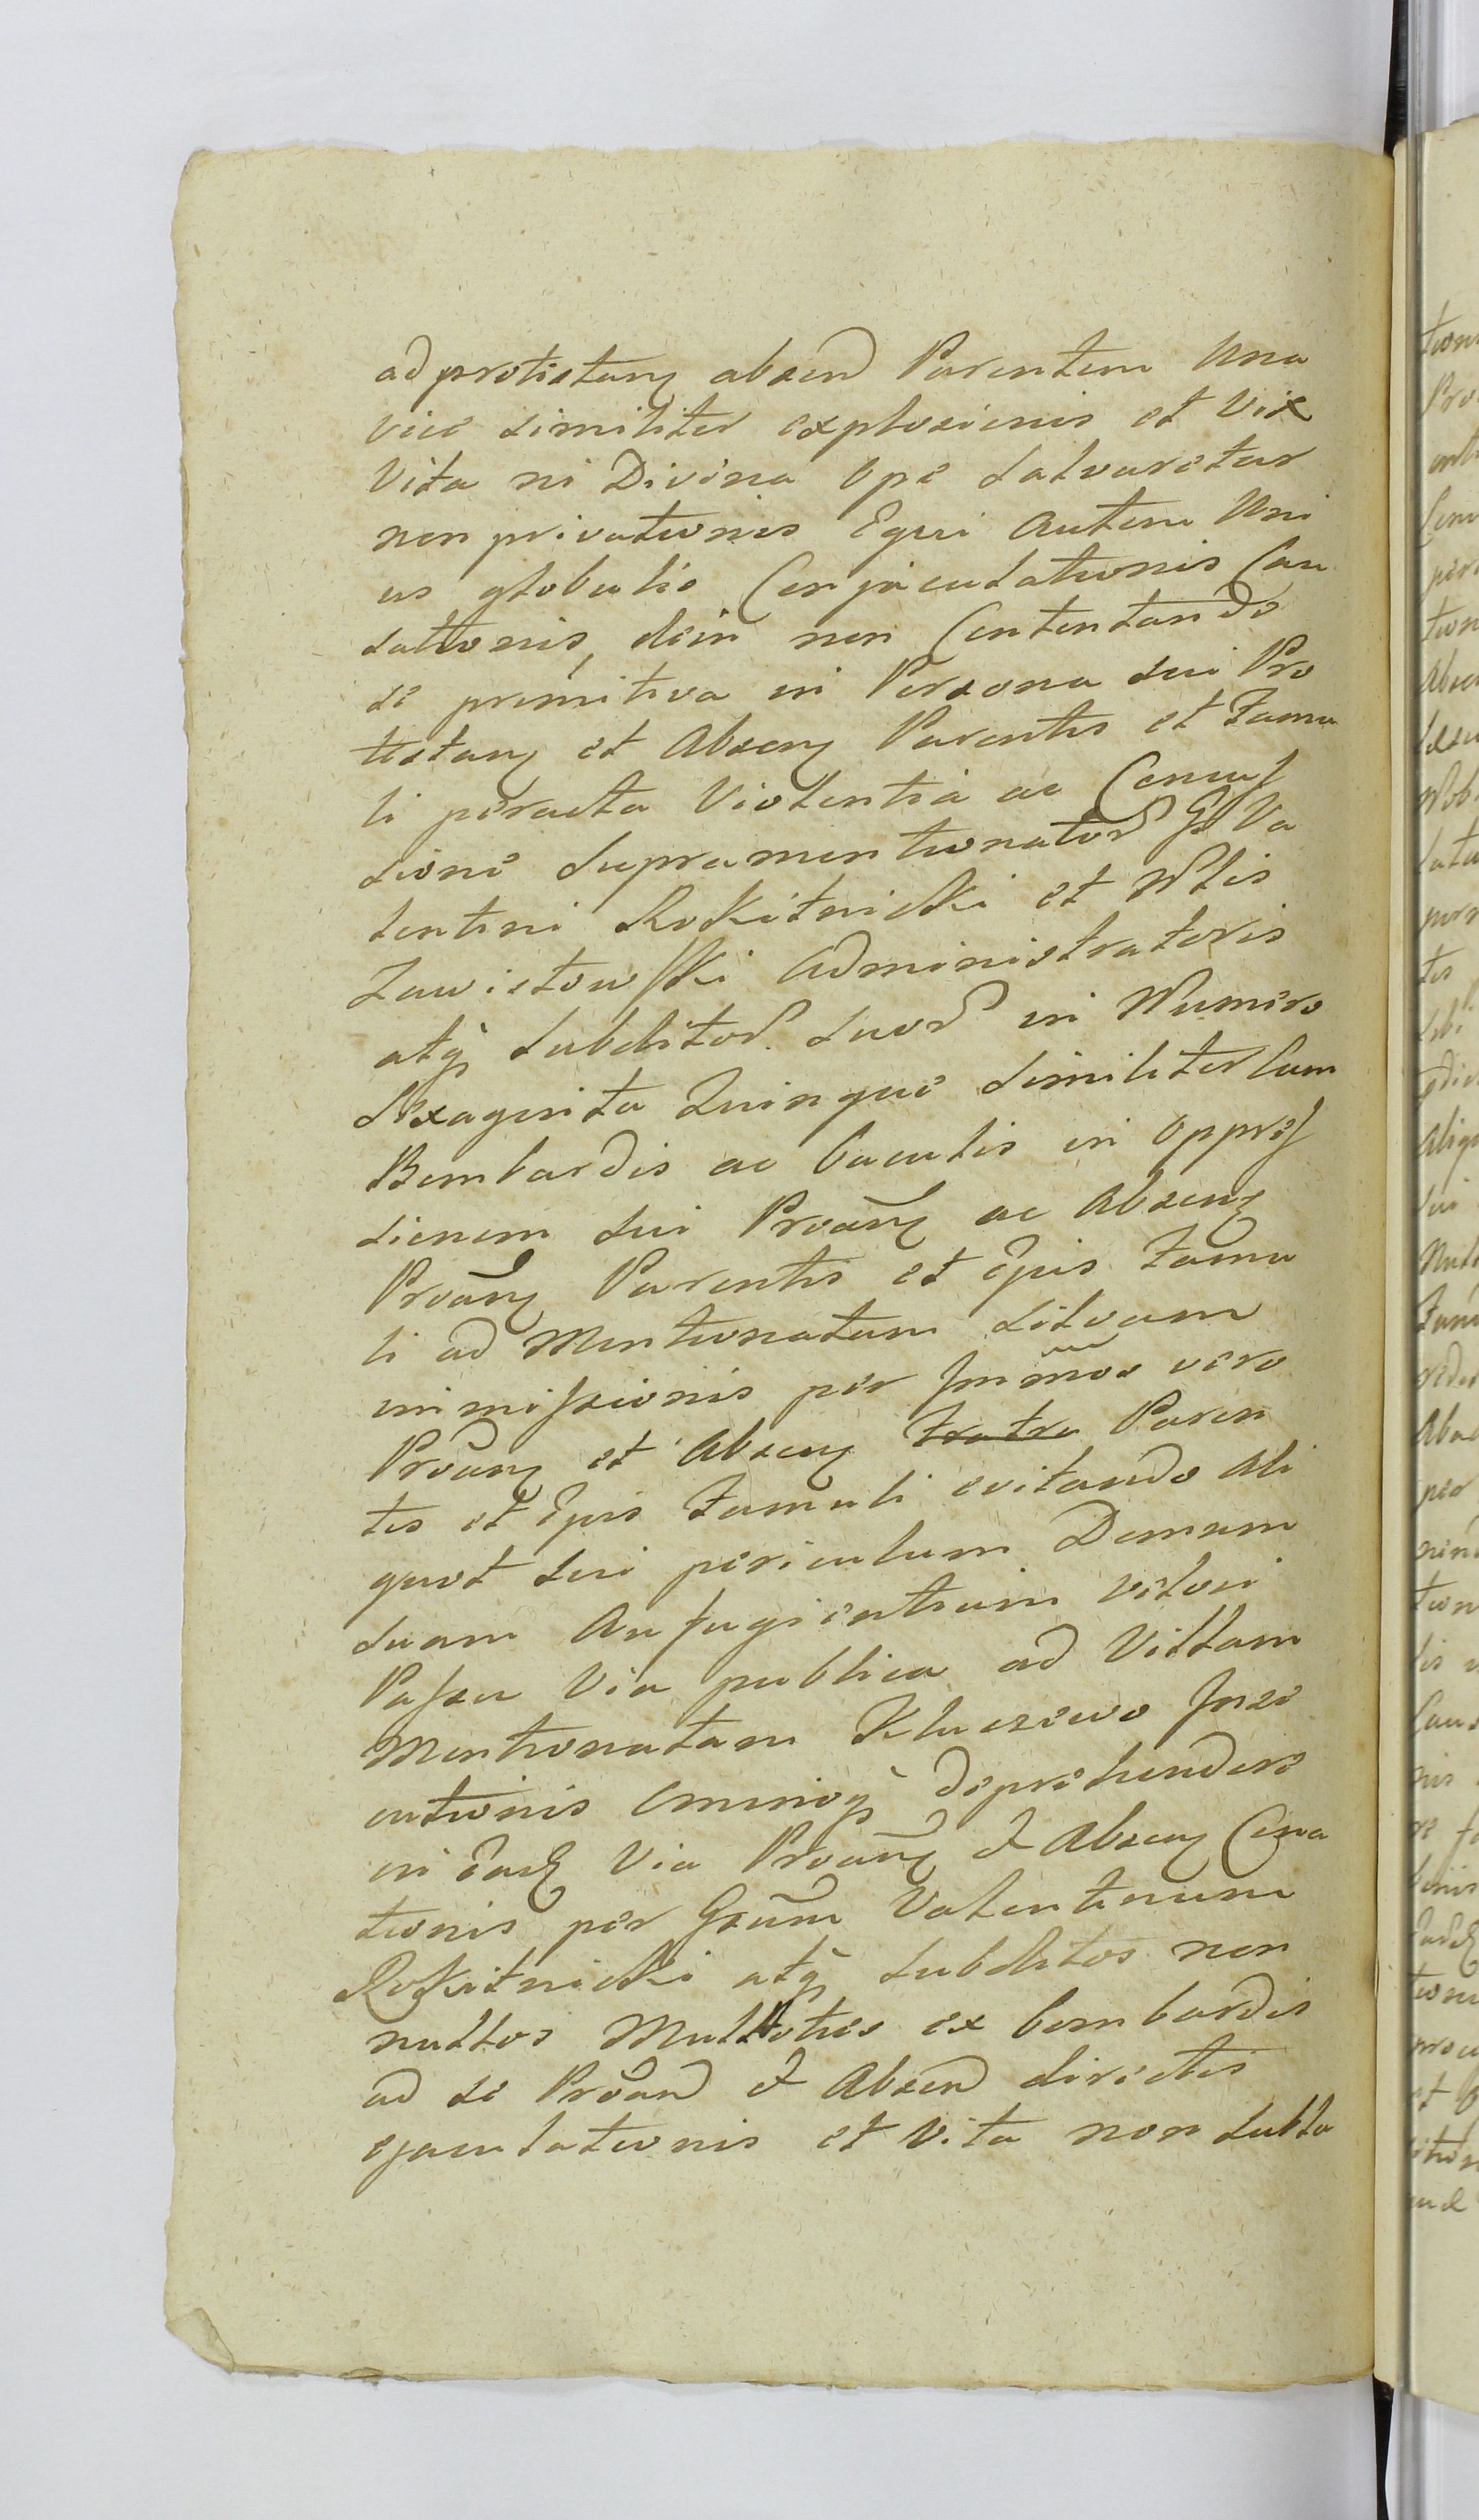 ad protestanz absend Parentem Una
vice similiter explosionis et vix
Vita ni Divina Ope salvaretur
non privationis Equi autem Uni
us globulis Conjaculationis Cau
sationis, dein non Contentando
se premitiva in Persona sui Pro
testanz et Absenz Parentis et Famu
li peracta Violentia ac Concus
sione supramentionator G Va
lentini Rokitnicki et Nblis
Zawistowski Administratoris
atq subditor. suor in Numero
sexaginta Quinque similiter Cum
Bombardis ac baculis in oppres
sionem sui Proanz ac Absenz
Proanz Parentis et Epis Famu
li ad Mentionatam silvam
immissionis per Immos vero
Proanz et Absenz Fratre Paren
tis et Epis Famuli evitando ali
quot sui periculum Domum
suam Aufugientium veloci
Passu Via publica ad Villam
Mentionatam Kluczewo Inse
cutionis Ominoq deprehendere
in Eadz Via Proanz & Absenz Cona
tionis per Gsum Valentinum
Rokitnicki atq subditos non
nullos Multoties ex bombardis
ad se Proand & Absend directis
ejaculationis et Vita non subla